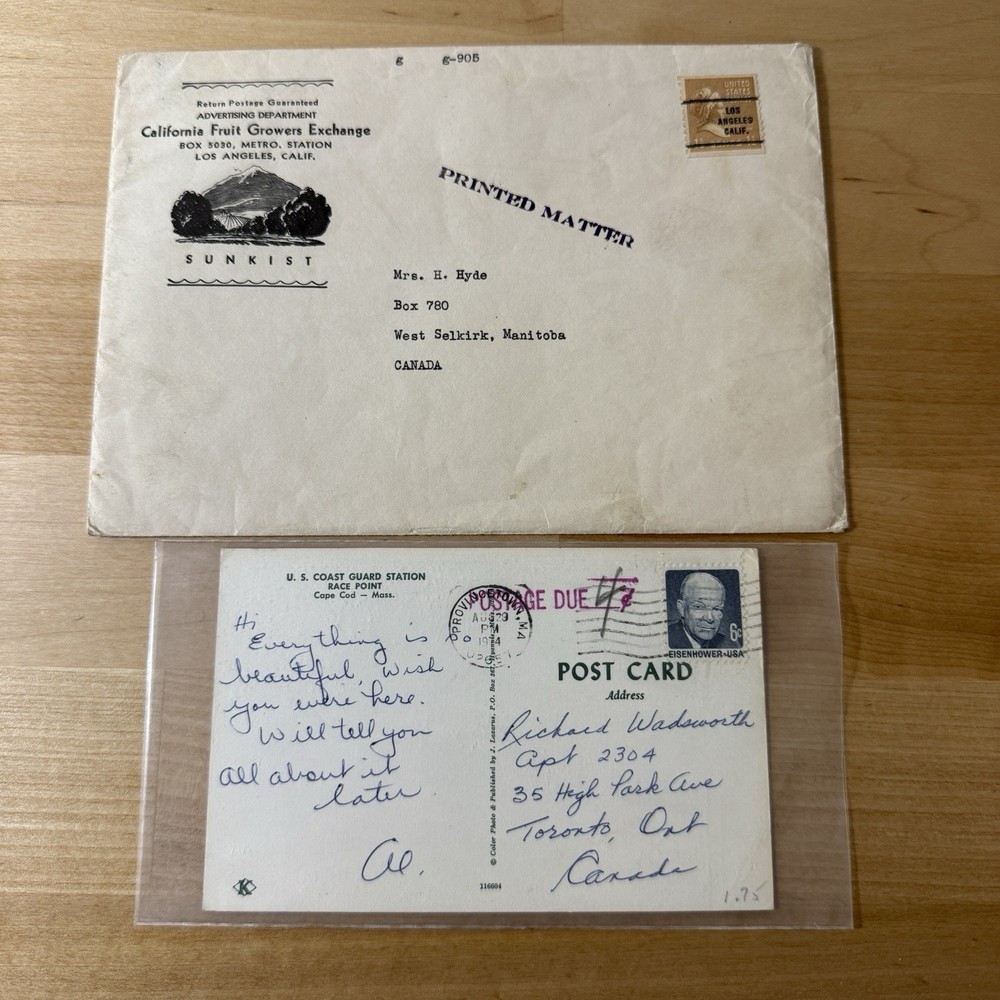 g g-905
Return Postage Guaranteed
ADVERTISING DEPARTMENT
California Fruit Growers Exchange
BOX 5030, METRO. STATION
LOS ANGELES, CALIF.
SUNKIST
UNITED
STATES
LOS
ANGELES
CALIF.
PRINTED MATTER
Mrs. H. Hyde
Box 780
West Selkirk, Manitoba
CANADA
U. S. COAST GUARD STATION
RACE POINT
Cape Cod — Mass.
Hi
Everything is so
beautiful, wish
you were here.
Will tell you
all about it
later.
Al.
K
© Color Photo & Published by J. Lazarus, P.O. Box
116604
PROVINCETOWN, MA
PM
1974
POSTAGE DUE
6c
EISENHOWER·USA
POST CARD
Address
Richard Wadsworth
Apt 2304
35 High Park Ave
Toronto, Ont
Canada
1.75